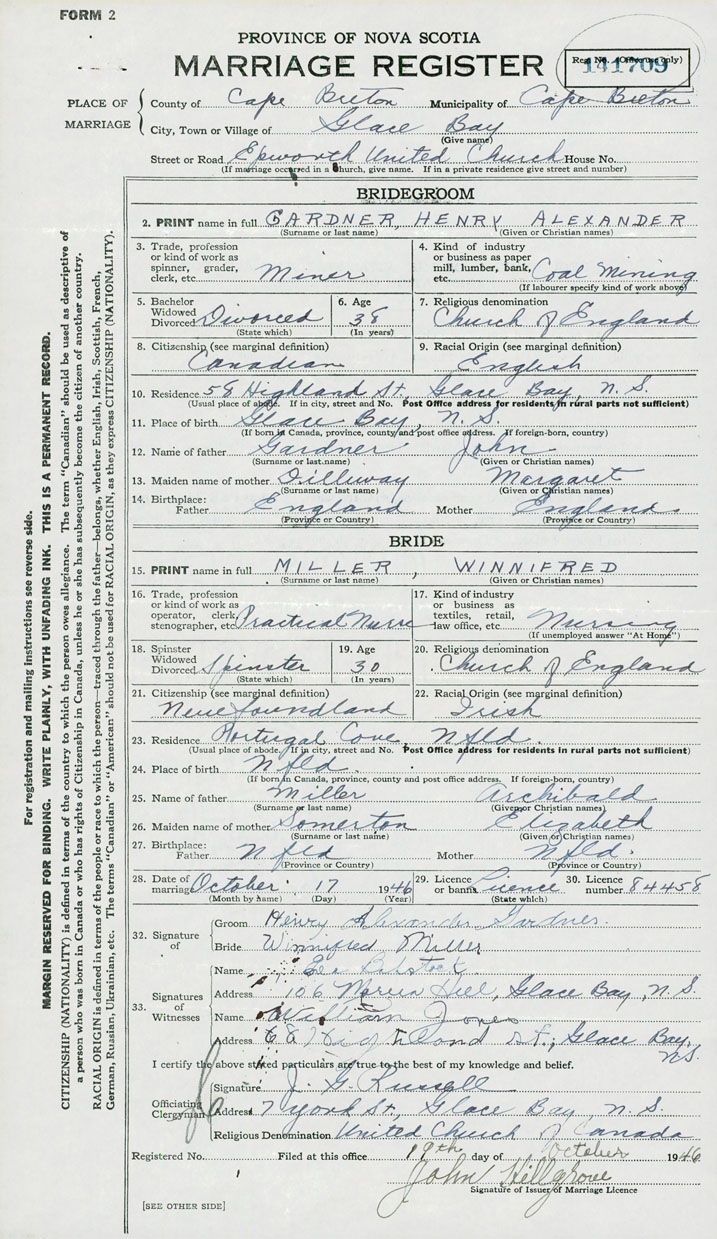 FORM 2
PROVINCE OF NOVA SCOTIA
MARRIAGE REGISTER
Reg. No. (Office use only)
141709
PLACE OF MARRIAGE
County of Cape Breton Municipality of Cape Breton
City, Town or Village of Glace Bay
(Give name)
Street or Road Epworth United Church House No.
(If marriage occurred in a church, give name. If in a private residence give street and number)
BRIDEGROOM
2. PRINT name in full GARDNER, HENRY ALEXANDER
(Surname or last name) (Given or Christian names)
3. Trade, profession or kind of work as spinner, grader, clerk, etc. Miner
4. Kind of industry or business as paper mill, lumber, bank, etc. Coal Mining
(If labourer specify kind of work above)
5. Bachelor Widowed Divorced Divorced
(State which)
6. Age 38
(In years)
7. Religious denomination
Church of England
8. Citizenship (see marginal definition)
Canadian
9. Racial Origin (see marginal definition)
English
10. Residence 58 Highland St, Glace Bay, N.S.
(Usual place of abode. If in city, street and No. Post Office address for residents in rural parts not sufficient)
11. Place of birth Glace Bay, N.S.
(If born in Canada, province, county and post office address. If foreign-born, country)
12. Name of father Gardner John
(Surname or last name) (Given or Christian names)
13. Maiden name of mother Dilleway Margaret
(Surname or last name) (Given or Christian names)
14. Birthplace:
Father England Mother England
(Province or Country) (Province or Country)
BRIDE
15. PRINT name in full MILLER, WINNIFRED
(Surname or last name) (Given or Christian names)
16. Trade, profession or kind of work as operator, clerk, stenographer, etc. Practical Nurse
17. Kind of industry or business as textiles, retail, law office, etc. Nursing
(If unemployed answer "At Home")
18. Spinster Widowed Divorced Spinster
(State which)
19. Age 30
(In years)
20. Religious denomination
Church of England
21. Citizenship (see marginal definition)
Newfoundland
22. Racial Origin (see marginal definition)
Irish
23. Residence Portugal Cove, Nfld.
(Usual place of abode. If in city, street and No. Post Office address for residents in rural parts not sufficient)
24. Place of birth Nfld.
(If born in Canada, province, county and post office address. If foreign-born, country)
25. Name of father Miller Archibald
(Surname or last name) (Given or Christian names)
26. Maiden name of mother Somerton Elizabeth
(Surname or last name) (Given or Christian names)
27. Birthplace:
Father Nfld Mother Nfld.
(Province or Country) (Province or Country)
28. Date of marriage October 17 1946
(Month by name) (Day) (Year)
29. Licence or banns Licence
(State which)
30. Licence number 84458
32. Signature of
Groom Henry Alexander Gardner
Bride Winnifred Miller
33. Signatures of Witnesses
Name
Address 106 Hill, Glace Bay, N.S.
Name William Jones
Address Highland St., Glace Bay, N.S.
I certify the above stated particulars are true to the best of my knowledge and belief.
Officiating Clergyman
Signature J. G. Russell
Address 7 York St, Glace Bay, N.S.
Religious Denomination United Church of Canada
Registered No. Filed at this office 19th day of October 1946
John Hillgrove
Signature of Issuer of Marriage Licence
[SEE OTHER SIDE]
For registration and mailing instructions see reverse side.
MARGIN RESERVED FOR BINDING. WRITE PLAINLY, WITH UNFADING INK. THIS IS A PERMANENT RECORD.
CITIZENSHIP (NATIONALITY) is defined in terms of the country to which the person owes allegiance. The term "Canadian" should be used as descriptive of
a person who was born in Canada or who has rights of Citizenship in Canada, unless he or she has subsequently become the citizen of another country.
RACIAL ORIGIN is defined in terms of the people or race to which the person—traced through the father—belongs, whether English, Irish, Scottish, French,
German, Russian, Ukrainian, etc. The terms "Canadian" or "American" should not be used for RACIAL ORIGIN, as they express CITIZENSHIP (NATIONALITY).